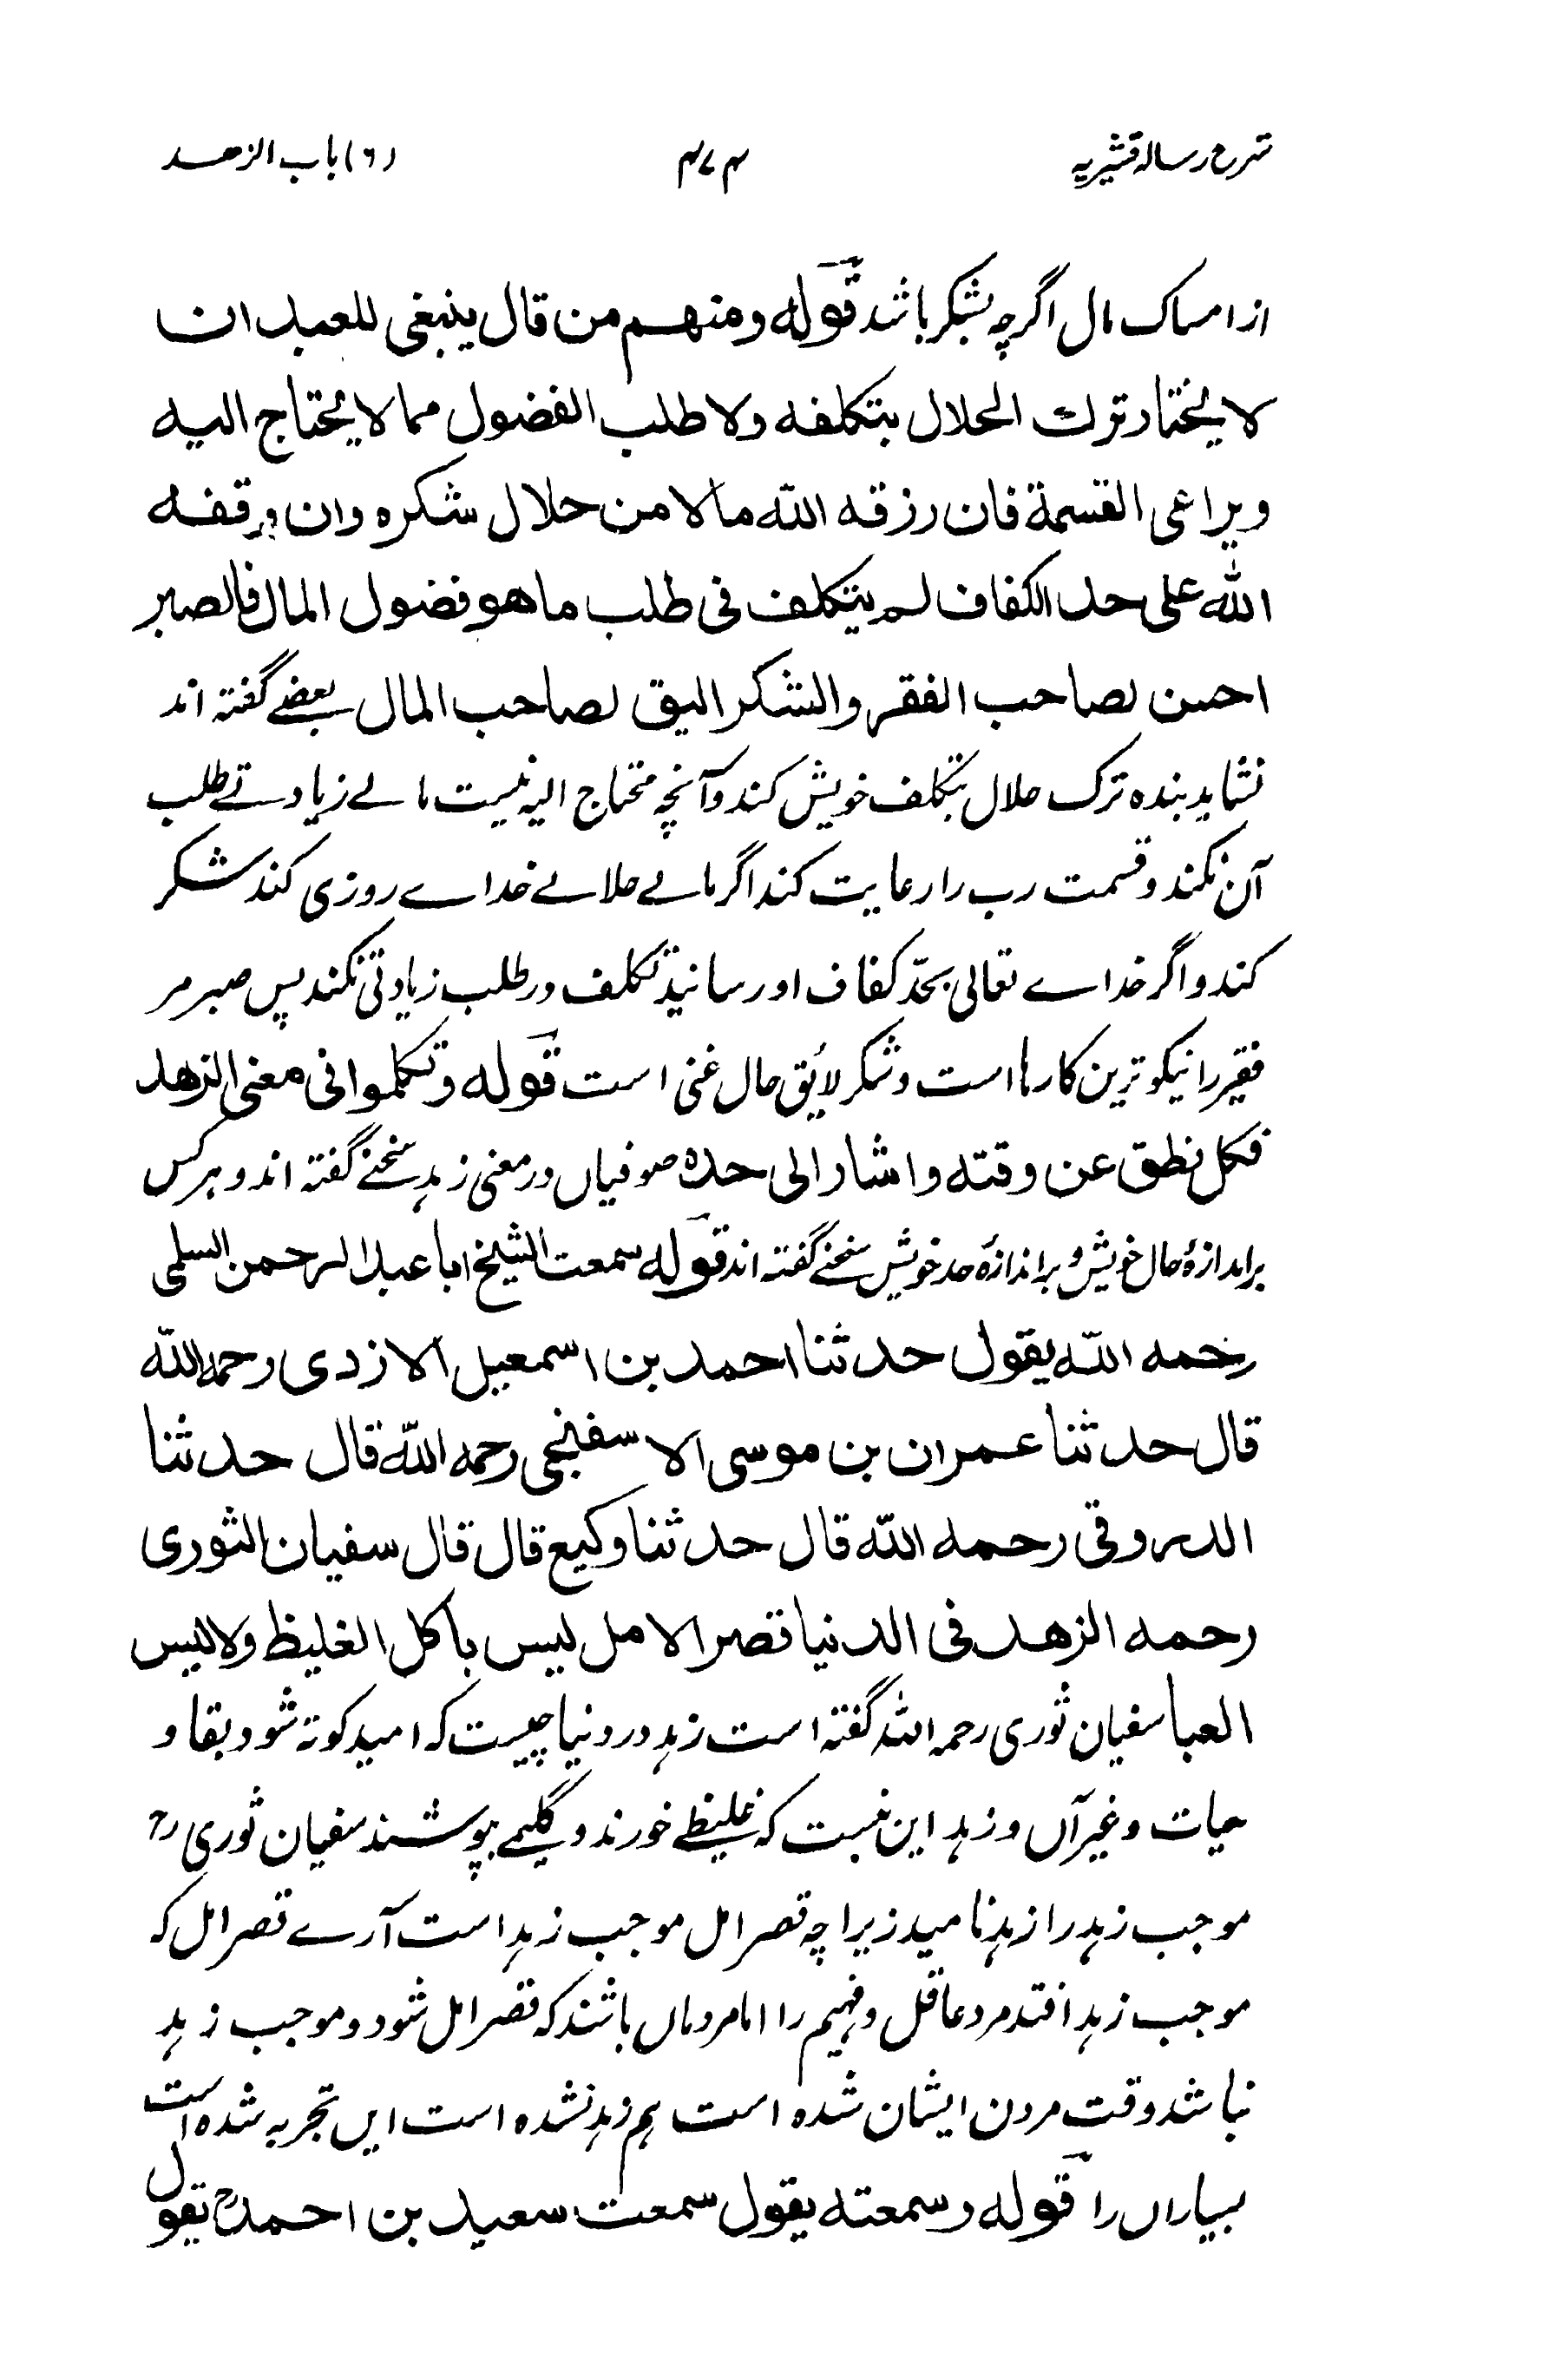 شرح رسالہ قشیریہ ۴۷۴ (٦) باب الزھد
از امساک مال اگرچہ بشکر باشد قولہ ومنھم من قال ینبغی للعبد ان
لا یختار ترک الحلال بتکلفہ ولا طلب الفضول مما لا یحتاج الیہ
ویراعی القسمۃ فان رزقہ اللہ مالا من حلال شکرہ وان وقفہ
اللہ علی حد الکفاف لم یتکلف فی طلب ما ھو فضول المال فالصبر
احسن لصاحب الفقر والشکر الیق لصاحب المال بعضے گفتہ اند
نشاید بندہ ترک حلال بتکلف خویش کند وآنچہ محتاج الیہ نیست مالے زیادتے طلب
آن نکند وقسمت رب را رعایت کند اگر مالے حلالے خداے روزی کند شکر
کند واگر خداے تعالی بحدّ کفاف او رسانید تکلف در طلب زیادتی نکند پس صبر مر
فقیر را نیکو ترین کارہا است وشکر لائق حال غنی است قولہ وتکلموا فی معنی الزھد
فکل نطق عن وقتہ واشار الی حدہ صوفیاں در معنی زہد سخنے گفتہ اند وہر کس
براندازۂ حال خویش وبراندازۂ حد خویش سخنے گفتہ اند قولہ سمعت الشیخ ابا عبد الرحمن السلمی
رحمہ اللہ یقول حدثنا احمد بن اسمعیل الازدی رحمہ اللہ
قال حدثنا عمران بن موسی الاسفنجی رحمہ اللہ قال حدثنا
الدروقی رحمہ اللہ قال حدثنا وکیع قال قال سفیان الثوری
رحمہ الزھد فی الدنیا قصر الامل لیس باکل الغلیظ ولا لبس
العبا سفیان ثوری رحمہ اللہ گفتہ است زہد در دنیا چیست کہ امید کوتہ شود بقا و
حیات وغیر آں وزہد این نیست کہ غلیظے خورند وگلیمے بپوشند سفیان ثوری رح
موجب زہد را زہد نامید زیرا چہ قصر امل موجب زہد است آرے قصر امل کہ
موجب زہد افتد مرد عاقل وفہیم را اما مردماں باشند کہ قصر امل شود وموجب زہد
نباشد وقت مردن ایشان شدہ است ہم زہد نشدہ است ایں تجربہ شدہ است
بسیاراں را قولہ وسمعتہ یقول سمعت سعید بن احمد رح یقول